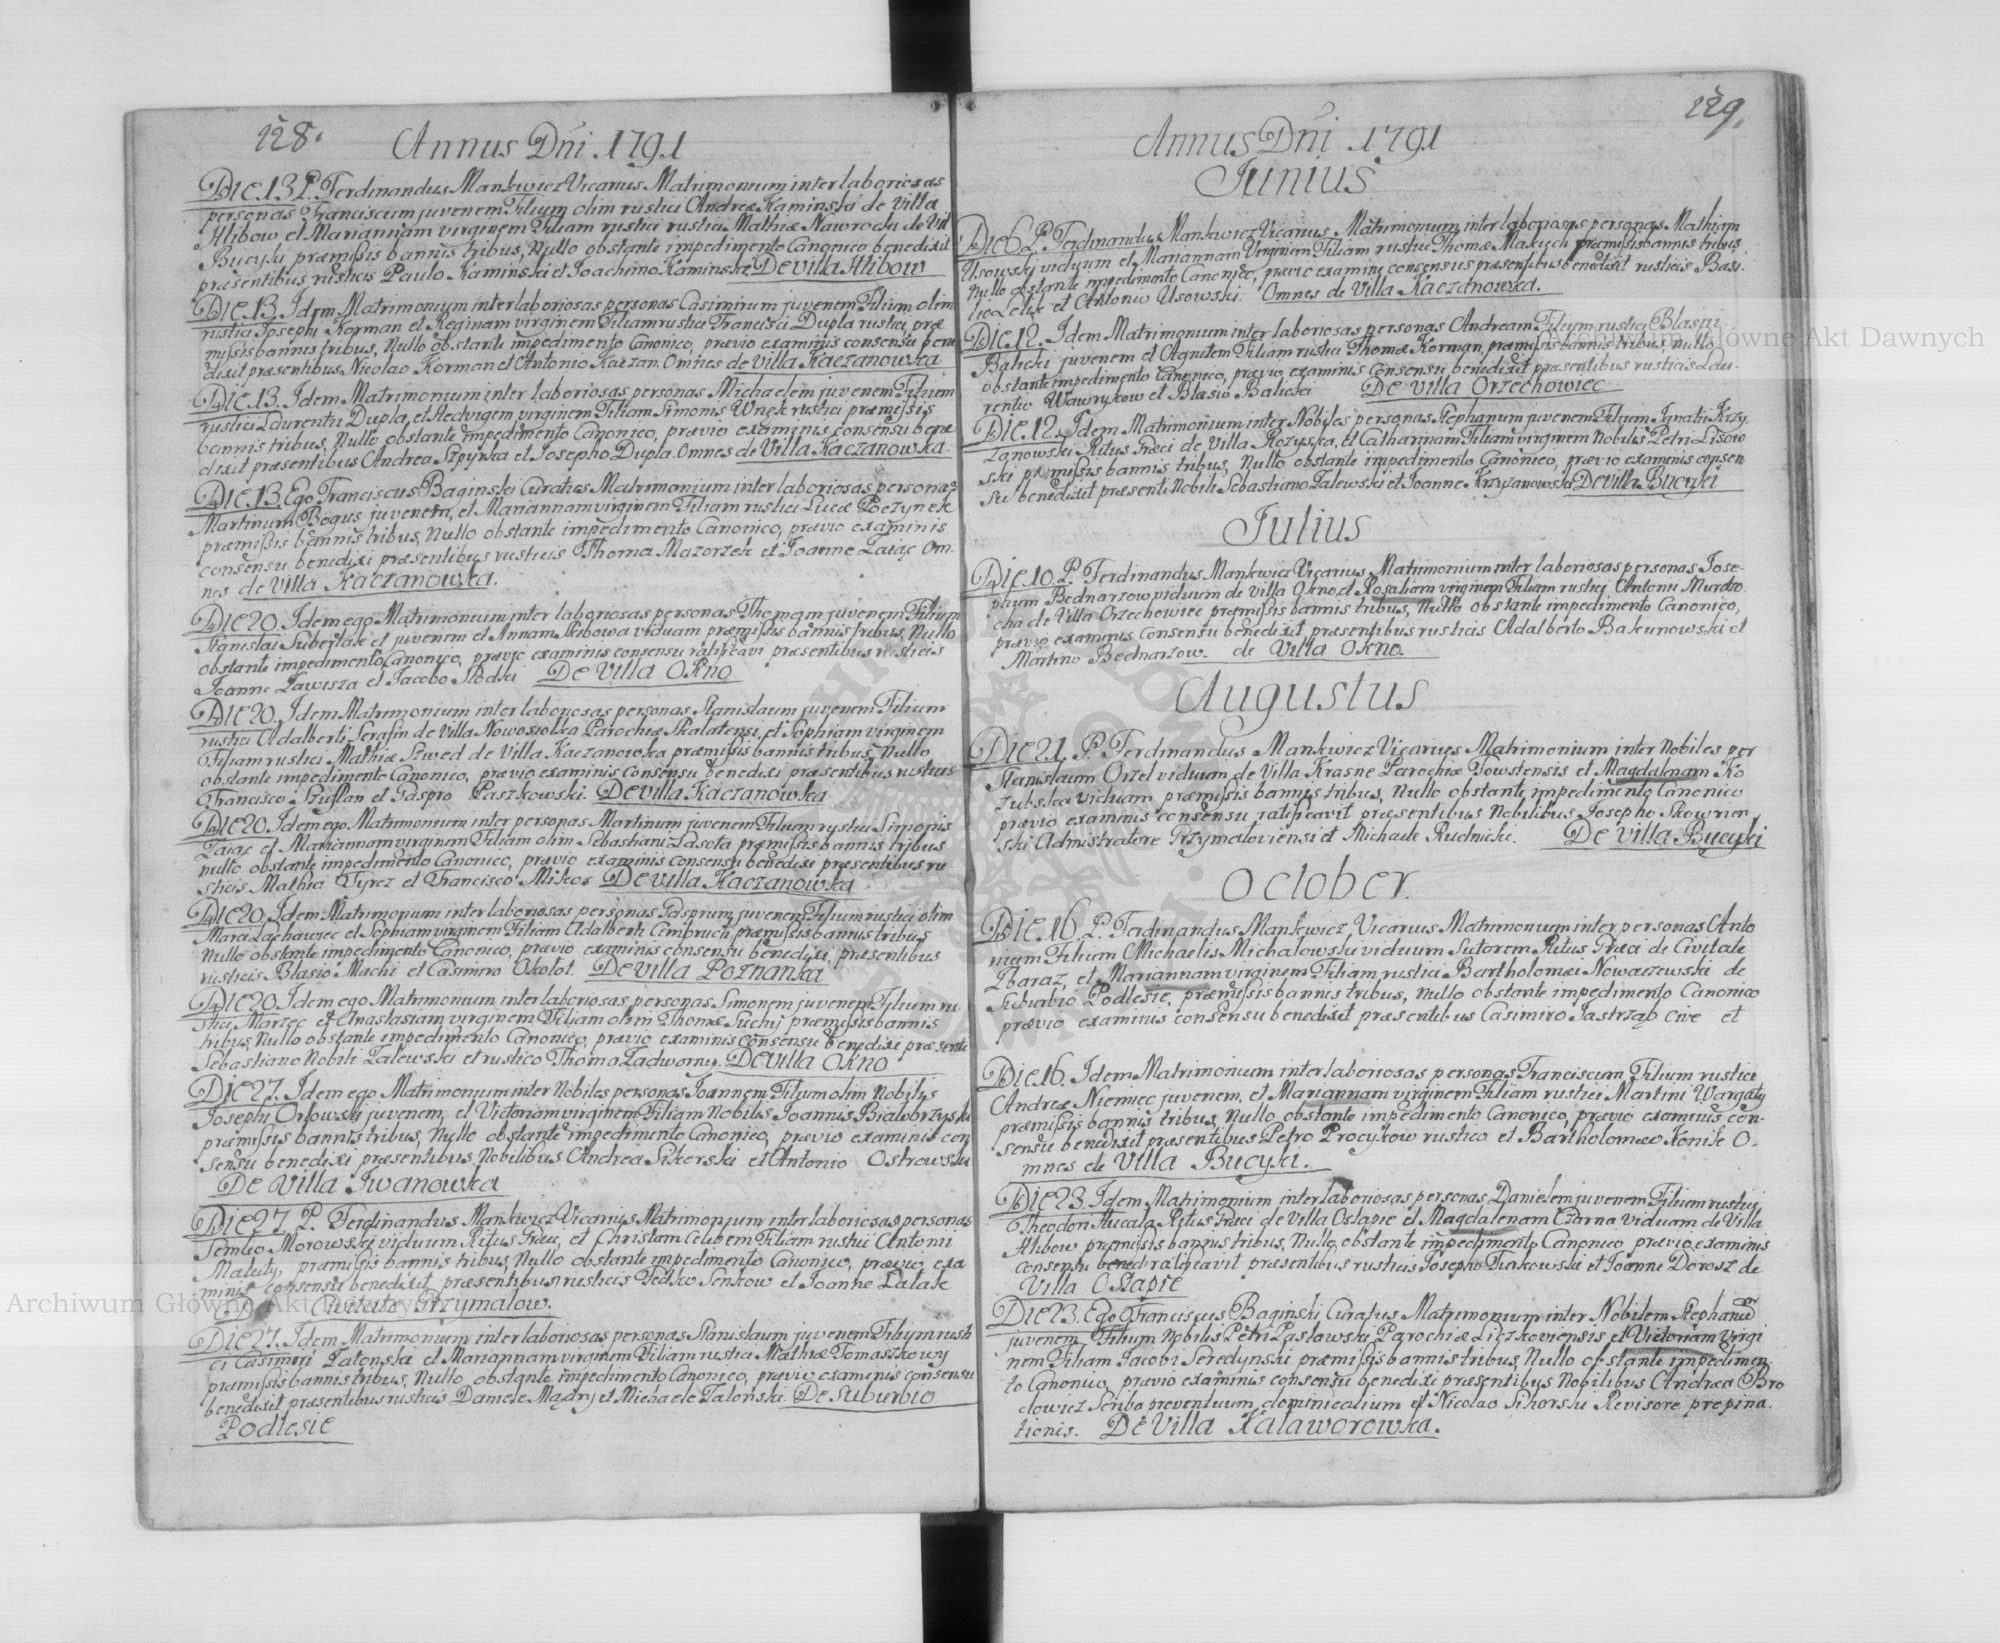 128.
Annus Dñi 1791
Die 13 P. Ferdinandus Mankiewicz Vicarius Matrimonium inter laboriosas
personas Franciscum juvenem Filium olim rustici Andreæ Kaminski de Villa
Hlibow et Mariannam virginem Filiam rustici rustici Mathiæ Nawrocki de Vil
Bucyki præmissis bannis tribus, Nullo obstante impedimento Canonico benedixit
præsentibus rusticis Paulo Kaminski et Joachimo Kaminski De Villa Hlibow
Die 13. Idem Matrimonium inter laboriosas personas Casimirum juvenem Filium olim
rustici Josephi Korman et Reginam virginem Filiam rustici Francisci Dupla rustici, præ
missis bannis tribus, Nullo obstante impedimento Canonico, prævio examinis consensu bene
dixit præsentibus Nicolao Korman et Antonio Kaczan. Omnes de Villa Kaczanowka
Die 13. Idem Matrimonium inter laboriosas personas Michaelem juvenem Filium
rustici Laurentii Dupla, et Hedvigem virginem Filiam Simonis Wnęk rustici præmissis
bannis tribus, Nullo obstante impedimento Canonico, prævio examinis consensu bene
dixit præsentibus Andrea Szpyrka et Josepho Dupla. Omnes de Villa Kaczanowka.
Die 13. Ego Franciscus Baginski Curatus Matrimonium inter laboriosas personas
Martinum Bogus juvenem, et Mariannam virginem Filiam rustici Lucæ Poczynek
præmissis bannis tribus, Nullo obstante impedimento Canonico, prævio examinis
consensu benedixi præsentibus rusticis Thoma Mazorzek et Joanne Zaiąc Om-
nes de Villa Kaczanowka.
Die 20. Idem ego Matrimonium inter laboriosas personas Thomam juvenem Filium
Stanislai et juvenem et Annam viduam præmissis bannis tribus, Nullo
obstante impedimento Canonico, prævio examinis consensu ratificavi præsentibus rusticis
Joanne Zawisza et Jacobo De Villa Okno
Die 20. Idem Matrimonium inter laboriosas personas Stanislaum juvenem Filium
rustici Adalberti Serafin de Villa Nowosiolka Parochiæ Skalatensi, et Sophiam virginem
Filiam rustici Mathiæ Szwed de Villa Kaczanowka præmissis bannis tribus, Nullo
obstante impedimento Canonico, prævio examinis consensu benedixi præsentibus rusticis
Francisco et Gaspro Paszkowski. De Villa Kaczanowka
Die 20. Idem ego Matrimonium inter personas Martinum juvenem Filium rustici Simonis
Zaiąc et Mariannam virginem Filiam olim Sebastiani Lasota præmissis bannis tribus
nullo obstante impedimento Canonico, prævio examinis consensu benedixi præsentibus ru
sticis Mathia Tyrcz et Francisco Mikos De Villa Kaczanowka
Die 20. Idem Matrimonium inter laboriosas personas Gasprum juvenem Filium rustici olim
Marci Lachawiec et Sophiam virginem Filiam Adalberti Cimbruch præmissis bannis tribus
Nullo obstante impedimento Canonico, prævio examinis consensu benedixi, præsentibus
rusticis Blasio Machi et Casimiro Okolot. De Villa Poznanka
Die 20. Idem ego Matrimonium inter laboriosas personas Simonem juvenem Filium ru
stici Marzec et Anastasiam virginem Filiam olim Thomæ Suchy præmissis bannis
tribus, Nullo obstante impedimento Canonico, prævio examinis consensu benedixi præsente
Sebastiano Nobili Zalewski et rustico Thoma Zadworny. De Villa Okno
Die 27. Idem ego Matrimonium inter Nobiles personas Joannem Filium olim Nobilis
Josephi Orlowski juvenem, et Victoriam virginem Filiam Nobilis Joannis Bialobrzyski
præmissis bannis tribus, Nullo obstante impedimento Canonico, prævio examinis con
sensu benedixi præsentibus Nobilibus Andrea Sikorski et Antonio Ostrowski
De Villa Iwanowka
Die 27. P. Ferdinandus Mankiewicz Vicarius Matrimonium inter laboriosas personas
Semko Morowski viduum Ritus Græci, et Christam Celibem Filiam rustici Antonii
Maluty, præmissis bannis tribus, Nullo obstante impedimento Canonico, prævio exa
minis consensu benedixit, præsentibus rusticis Fedko Senkow et Joanne Latak
De Civitate Grzymalow.
Die 27. Idem Matrimonium inter laboriosas personas Stanislaum juvenem Filium rusti
ci Casimiri Zalonski et Mariannam virginem Filiam rustici Mathiæ Tomaszkowy
præmissis bannis tribus, Nullo obstante impedimento Canonico, prævio examinis consensu
benedixit præsentibus rusticis Daniele Mądry et Michaele Zalonski. De Suburbio
Podlesie
129.
Annus Dñi 1791
Junius
Die 6 P. Ferdinandus Mankiewicz Vicarius Matrimonium inter laboriosas personas Mathiam
Usowski viduum et Mariannam Virginem Filiam rustici Thomæ Makuch præmissis bannis tribus
Nullo obstante impedimento Canonico, prævio examine consensus præsentibus benedixit rusticis Basi-
lio Lelik et Antonio Usowski. Omnes de Villa Kaczanowka.
Die 12. Idem Matrimonium inter laboriosas personas Andream Filium rustici Blasii
Balicki juvenem et Agnetem Filiam rustici Thomæ Korman, præmissis bannis tribus, nullo
obstante impedimento Canonico, prævio examinis consensu benedixit præsentibus rusticis Lau-
rentio Wawrykow et Blasio Balicki De Villa Orzechowiec
Die 12. Idem Matrimonium inter Nobiles personas Stephanum juvenem Filium Ignatii Krzy
zanowski Ritus Græci de Villa Rozyska, et Catharinam Filiam virginem Nobilis Petri Lisow
ski præmissis bannis tribus, Nullo obstante impedimento Canonico, prævio examinis consen
su benedixit præsente Nobili Sebastiano Zalewski et Joanne Krzyzanowski De Villa Bucyki
Julius
Die 10. P. Ferdinandus Mankiewicz Vicarius Matrimonium inter laboriosas personas Jose-
phum Bednarzow viduum de Villa Okno, et Rosaliam virginem Filiam rustici Antonii
cha de Villa Orzechowiec præmissis bannis tribus, Nullo obstante impedimento Canonico,
prævio examinis consensu benedixit præsentibus rusticis Adalberto Bakunowski et
Martino Bednarzow. de Villa Okno.
Augustus
Die 21. P. Ferdinandus Mankiewicz Vicarius Matrimonium inter Nobiles per
Stanislaum Orzel viduum de Villa Krasne Parochiæ Towstensis et Magdalenam Ko
zubska viduam præmissis bannis tribus, Nullo obstante impedimento Canonico
prævio examinis consensu ratificavit præsentibus Nobilibus Josepho Skowrien
ski Administratore Grzymaloviensi et Michaele Rudnicki. De Villa Bucyki
October.
Die 16. P. Ferdinandus Mankiewicz, Vicarius Matrimonium inter personas Anto
nium Filium Michaelis Michalowski viduum Sutorem Ritus Græci de Civitate
Zbaraz, et Mariannam virginem Filiam rustici Bartholomæi Nowaczewski de
Suburbio Podlesie, præmissis bannis tribus, Nullo obstante impedimento Canonico
prævio examinis consensu benedixit præsentibus Casimiro Jastrząb cive et
Die 16. Idem Matrimonium inter laboriosas personas Franciscum Filium rustici
Andreæ Niemiec juvenem, et Mariannam virginem Filiam rustici Martini Wargaty
præmissis bannis tribus, Nullo obstante impedimento Canonico, prævio examinis con-
sensu benedixit præsentibus Petro Procykow rustico et Bartholomæo Konik O-
mnes de Villa Bucyki.
Die 23. Idem Matrimonium inter laboriosas personas Danielem juvenem Filium rustici
Theodori Hucala Ritus Græci de Villa Ostapie et Magdalenam Czarna viduam de Villa
Hlibow præmissis bannis tribus, Nullo obstante impedimento Canonico prævio examinis
consensu ratificavit præsentibus rusticis Josepho Turkowski et Joanne Dorosz de
Villa Ostapie
Die 23. Ego Franciscus Baginski Curatus Matrimonium inter Nobilem Stephanum
juvenem Filium Nobilis Petri Paslawski Parochiæ Liczkoviensis et Victoriam Virgi
nem Filiam Jacobi Seredynski præmissis bannis tribus, Nullo obstante impedimen
to Canonico, prævio examinis consensu benedixi præsentibus Nobilibus Andrea Bro
dowicz Scriba proventuum dominicalium et Nicolao Sikorski Revisore propina-
tionis. De Villa Kalaworowka.
Archiwum Główne Akt Dawnych
Archiwum Główne Akt Dawnych